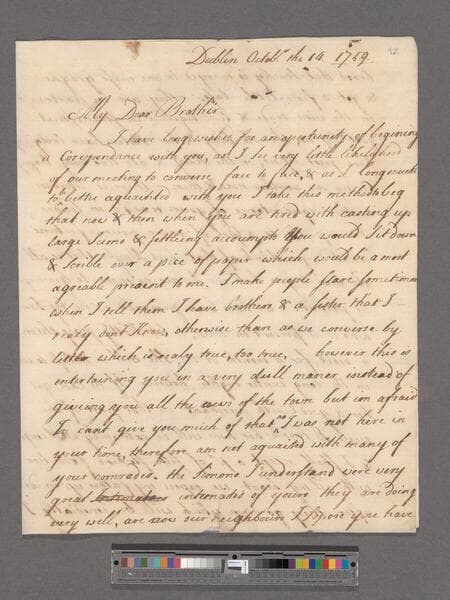 12
Dublin Octobr. the 14 1759
My Dear Brother
I have long wished for an oportunity of begining
a Corespondance with you, as I see very little likelyhood
of our meeting to converse face to face, & as I long much
to be better aquaited with you I take this methode to beg
that now & then when you are tired with casting up
large sums & settleing accoumpts you would sit down
& scrible over a pice of paper which would be a most
agreable present to me. I make people stare sometimes
when I tell them I have brothers & a sister that I
realy dont know, otherwise than as we converse by
litter which is realy true, too true, however this is
entertaining you in a very dull maner instead of
giveing you all the news of the town but im afraid
I cant give you much of that as I was not here in
your time, therefore am not aquaited with many of
your comrades. the Simons I understand were very
great intimates of yours they are doing
very well, are now our neighbours I supose you have